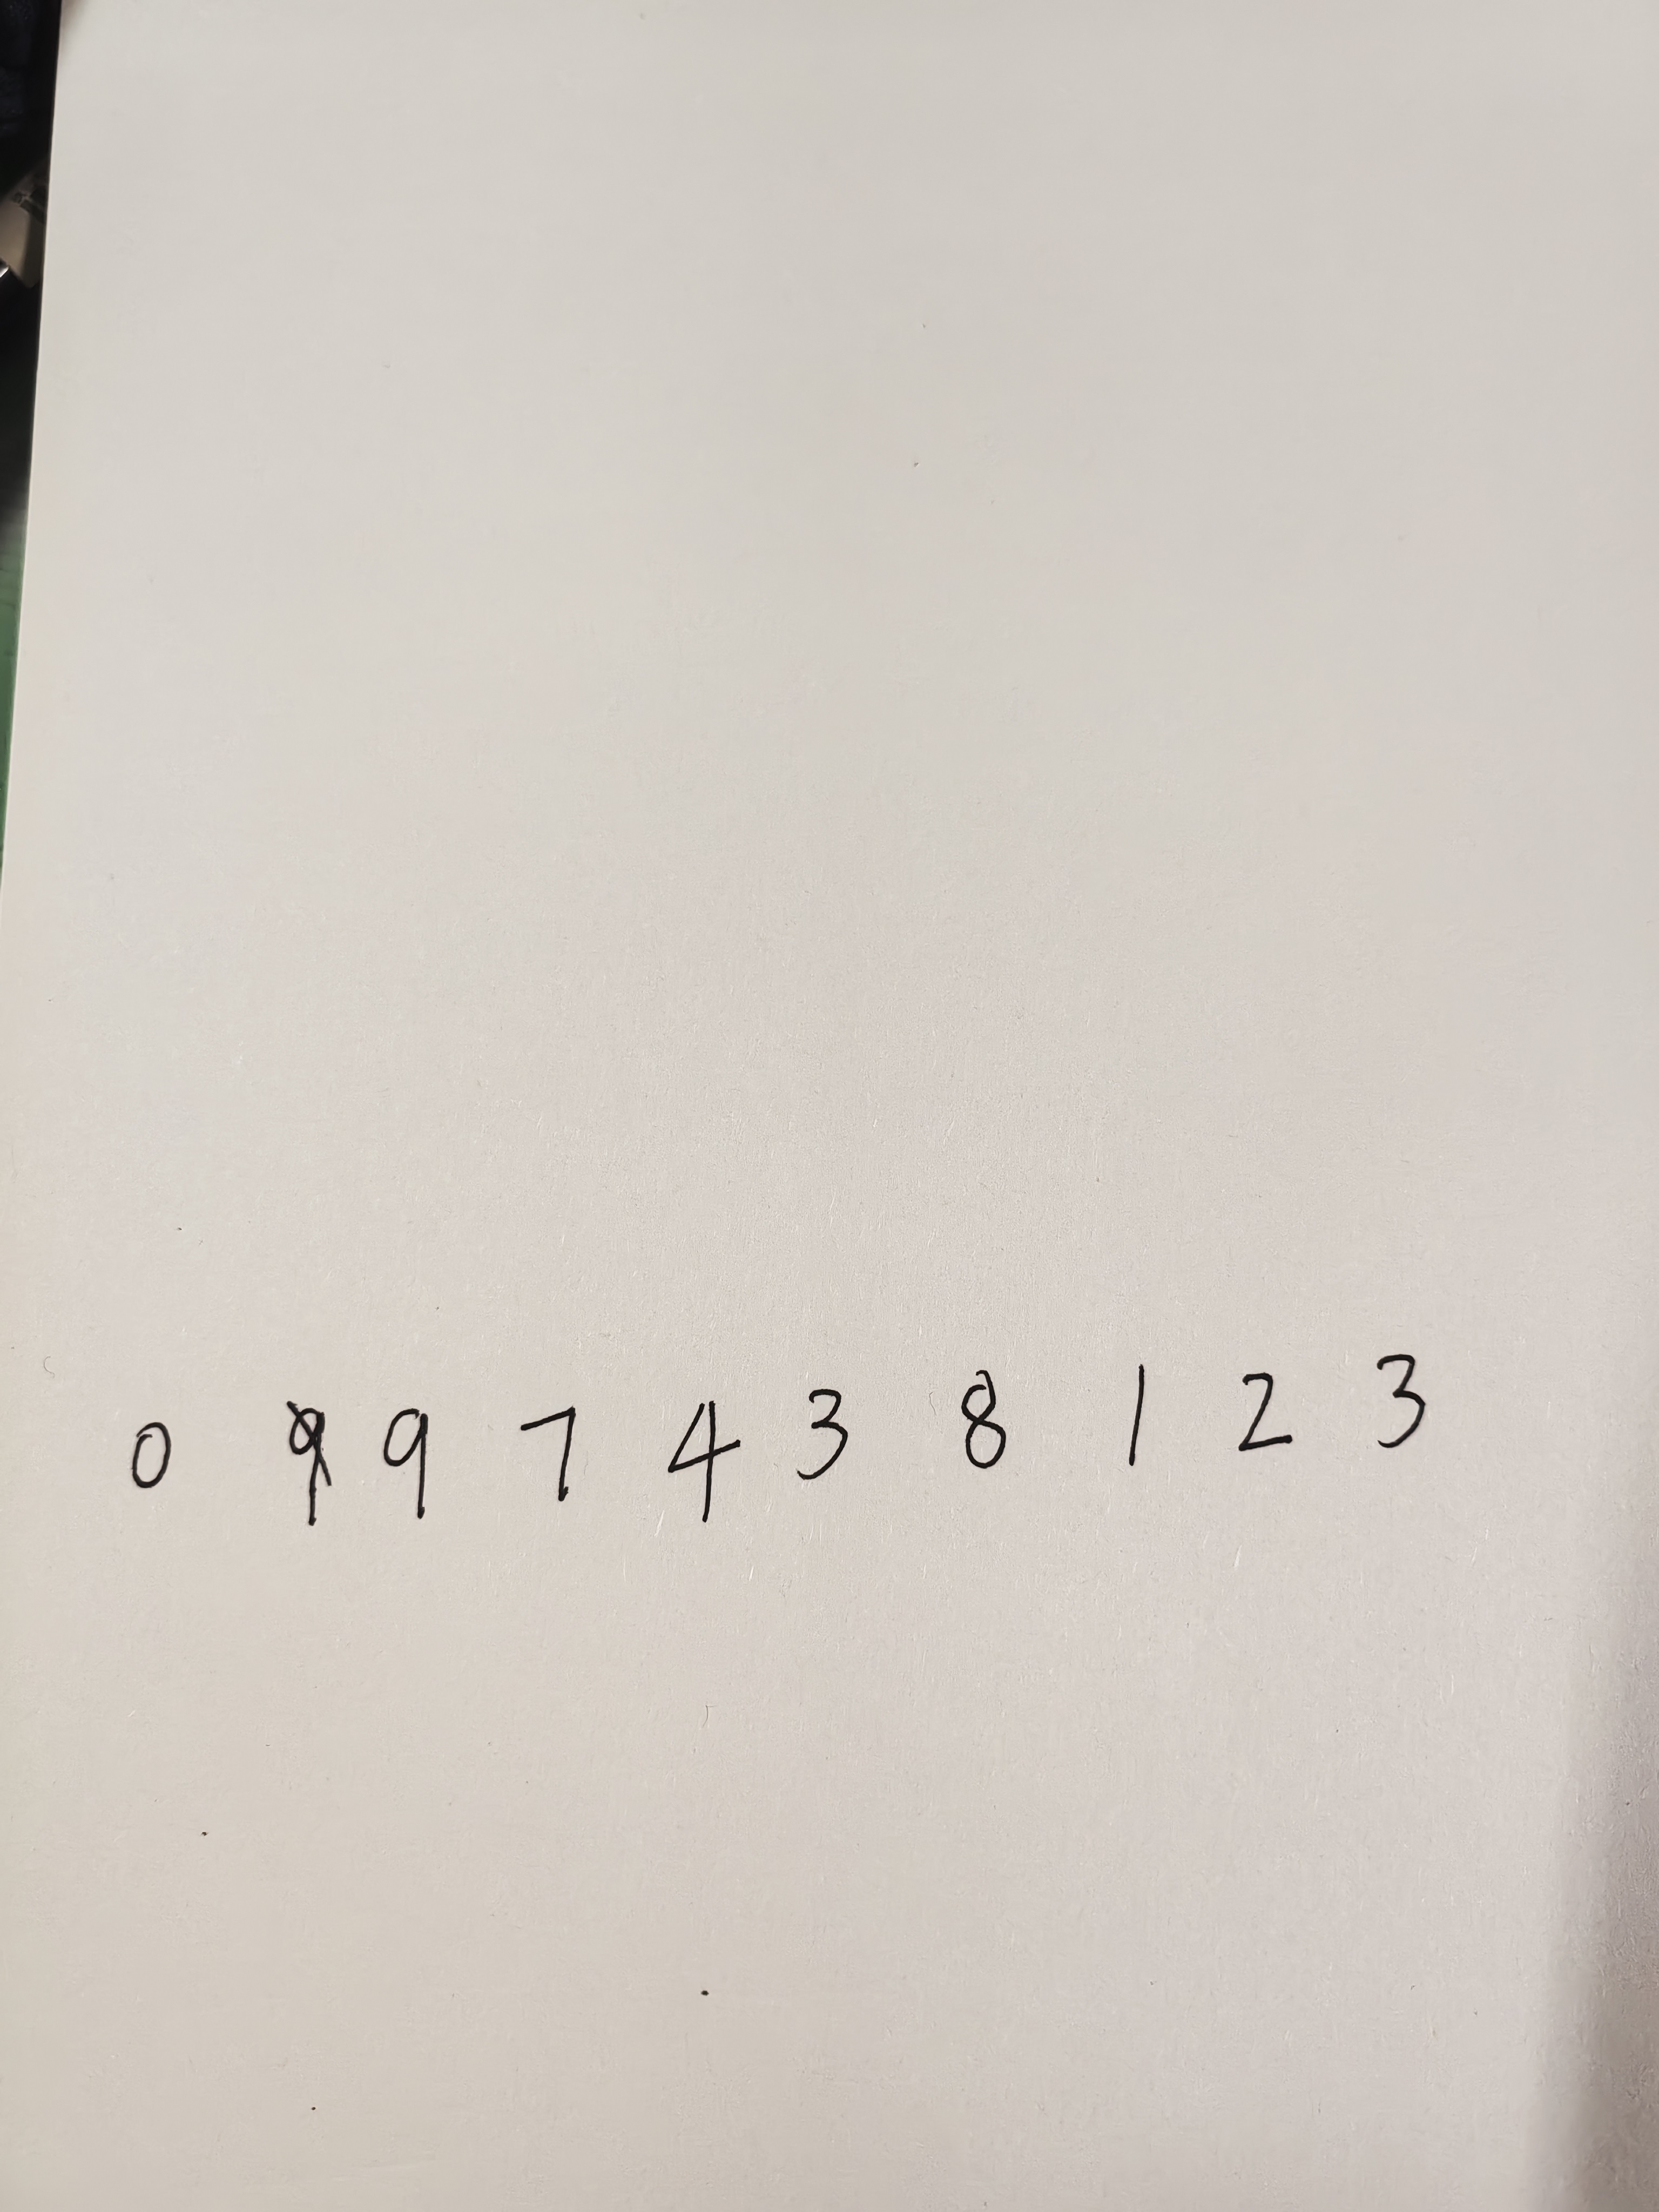 0 9 7 4 3 8 1 2 3